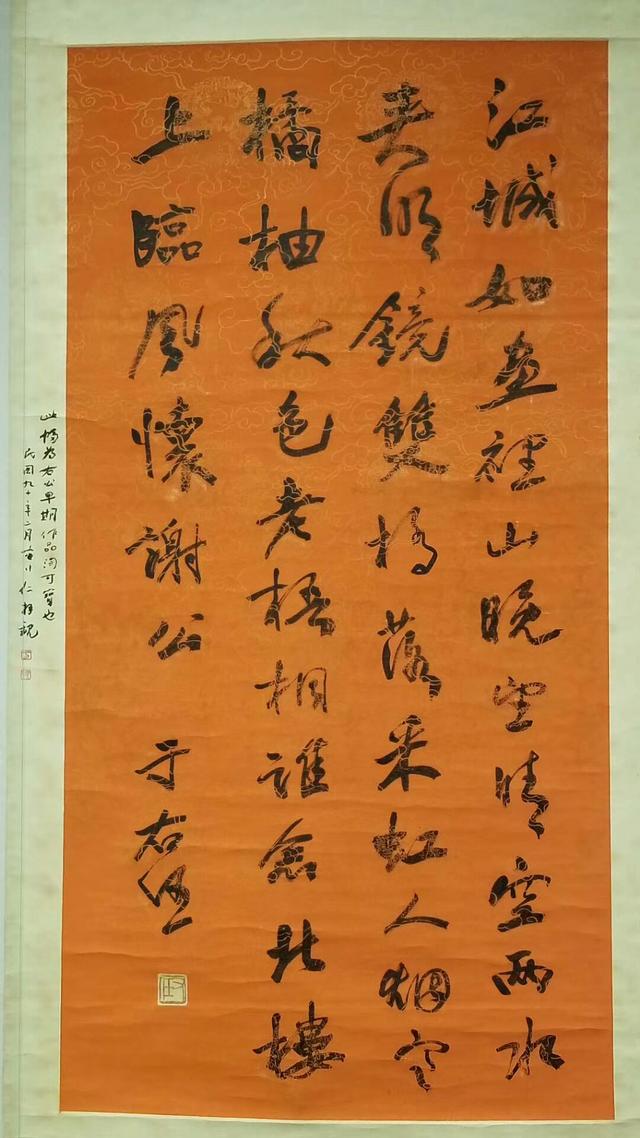 江城如畫裡山晚望晴空兩水
夾明鏡雙橋落采虹人烟寒
橘柚秋色老梧桐誰念北樓
上臨風懷謝公 于右任
此幅為右公早期作品洵可寶也
民國九十年二月仁拜觀